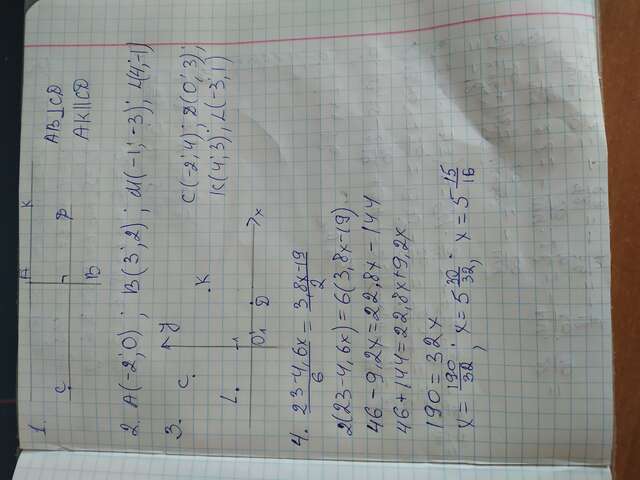 1.
A K
C D
B
AB⊥CD
AK∥CD
2. A(-2; 0); B(3; 2); M(-1; -3); L(4; -1)
3.
y
C. .K
L. 1
0 1 D x
C(-2; 4); D(0; 3);
K(4; 3); L(-3; 1)
4. 23-4,6x/6 = 3,8x-19/2
2(23-4,6x)=6(3,8x-19)
46-9,2x=22,8x-144
46+144=22,8x+9,2x
190=32x
x=190/32; x=5 30/32; x=5 15/16